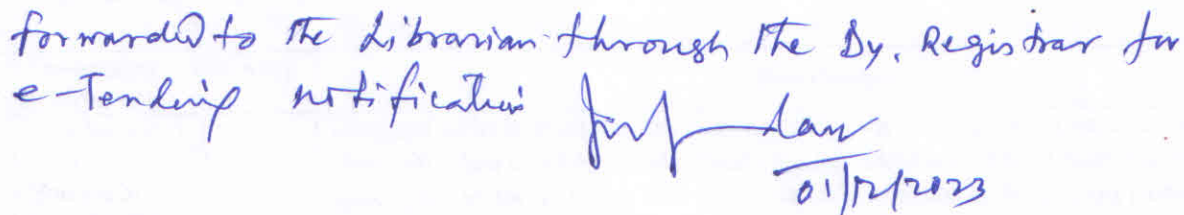 forwarded to the Librarian through the Dy. Registrar for
e-Tending notification
01/12/2023